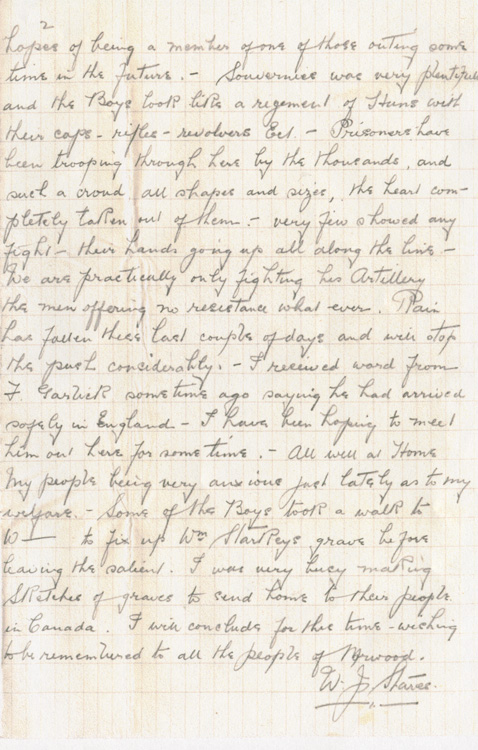 2
hopes of being a member of one of those outing some
time in the future. - Souvernies was very plentiful
and the Boys look like a regement of Huns with
their caps - rifles - revolvers Ect. - Prisoners have
been trooping through here by the thousands, and
such a croud all shapes and sizes, the heart com-
pletely taken out of them. - very few showed any
fight - their hands going up all along the line. -
We are practically only fighting his Artillery
the men offering no resistance what ever. Rain
has fallen these last couple of days and will stop
the push considerably. - I received word from
F Garlick sometime ago saying he had arrived
safely in England - I have been hoping to meet
him out here for some time. - All well at Home
My people being very anxious just lately as to my
welfare. - Some of the Boys took a walk to
W— to fix up Wm Starkeys grave before
leaving the salient. I was very busy making
Sketches of graves to send home to their people
in Canada. I will conclude for this time - wishing
to be remembered to all the people of Norwood.
W. J.